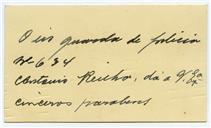 O ex guarda de policia
Nº 634
Antonio Rocha, dá a V. Exª
sinceros parabens